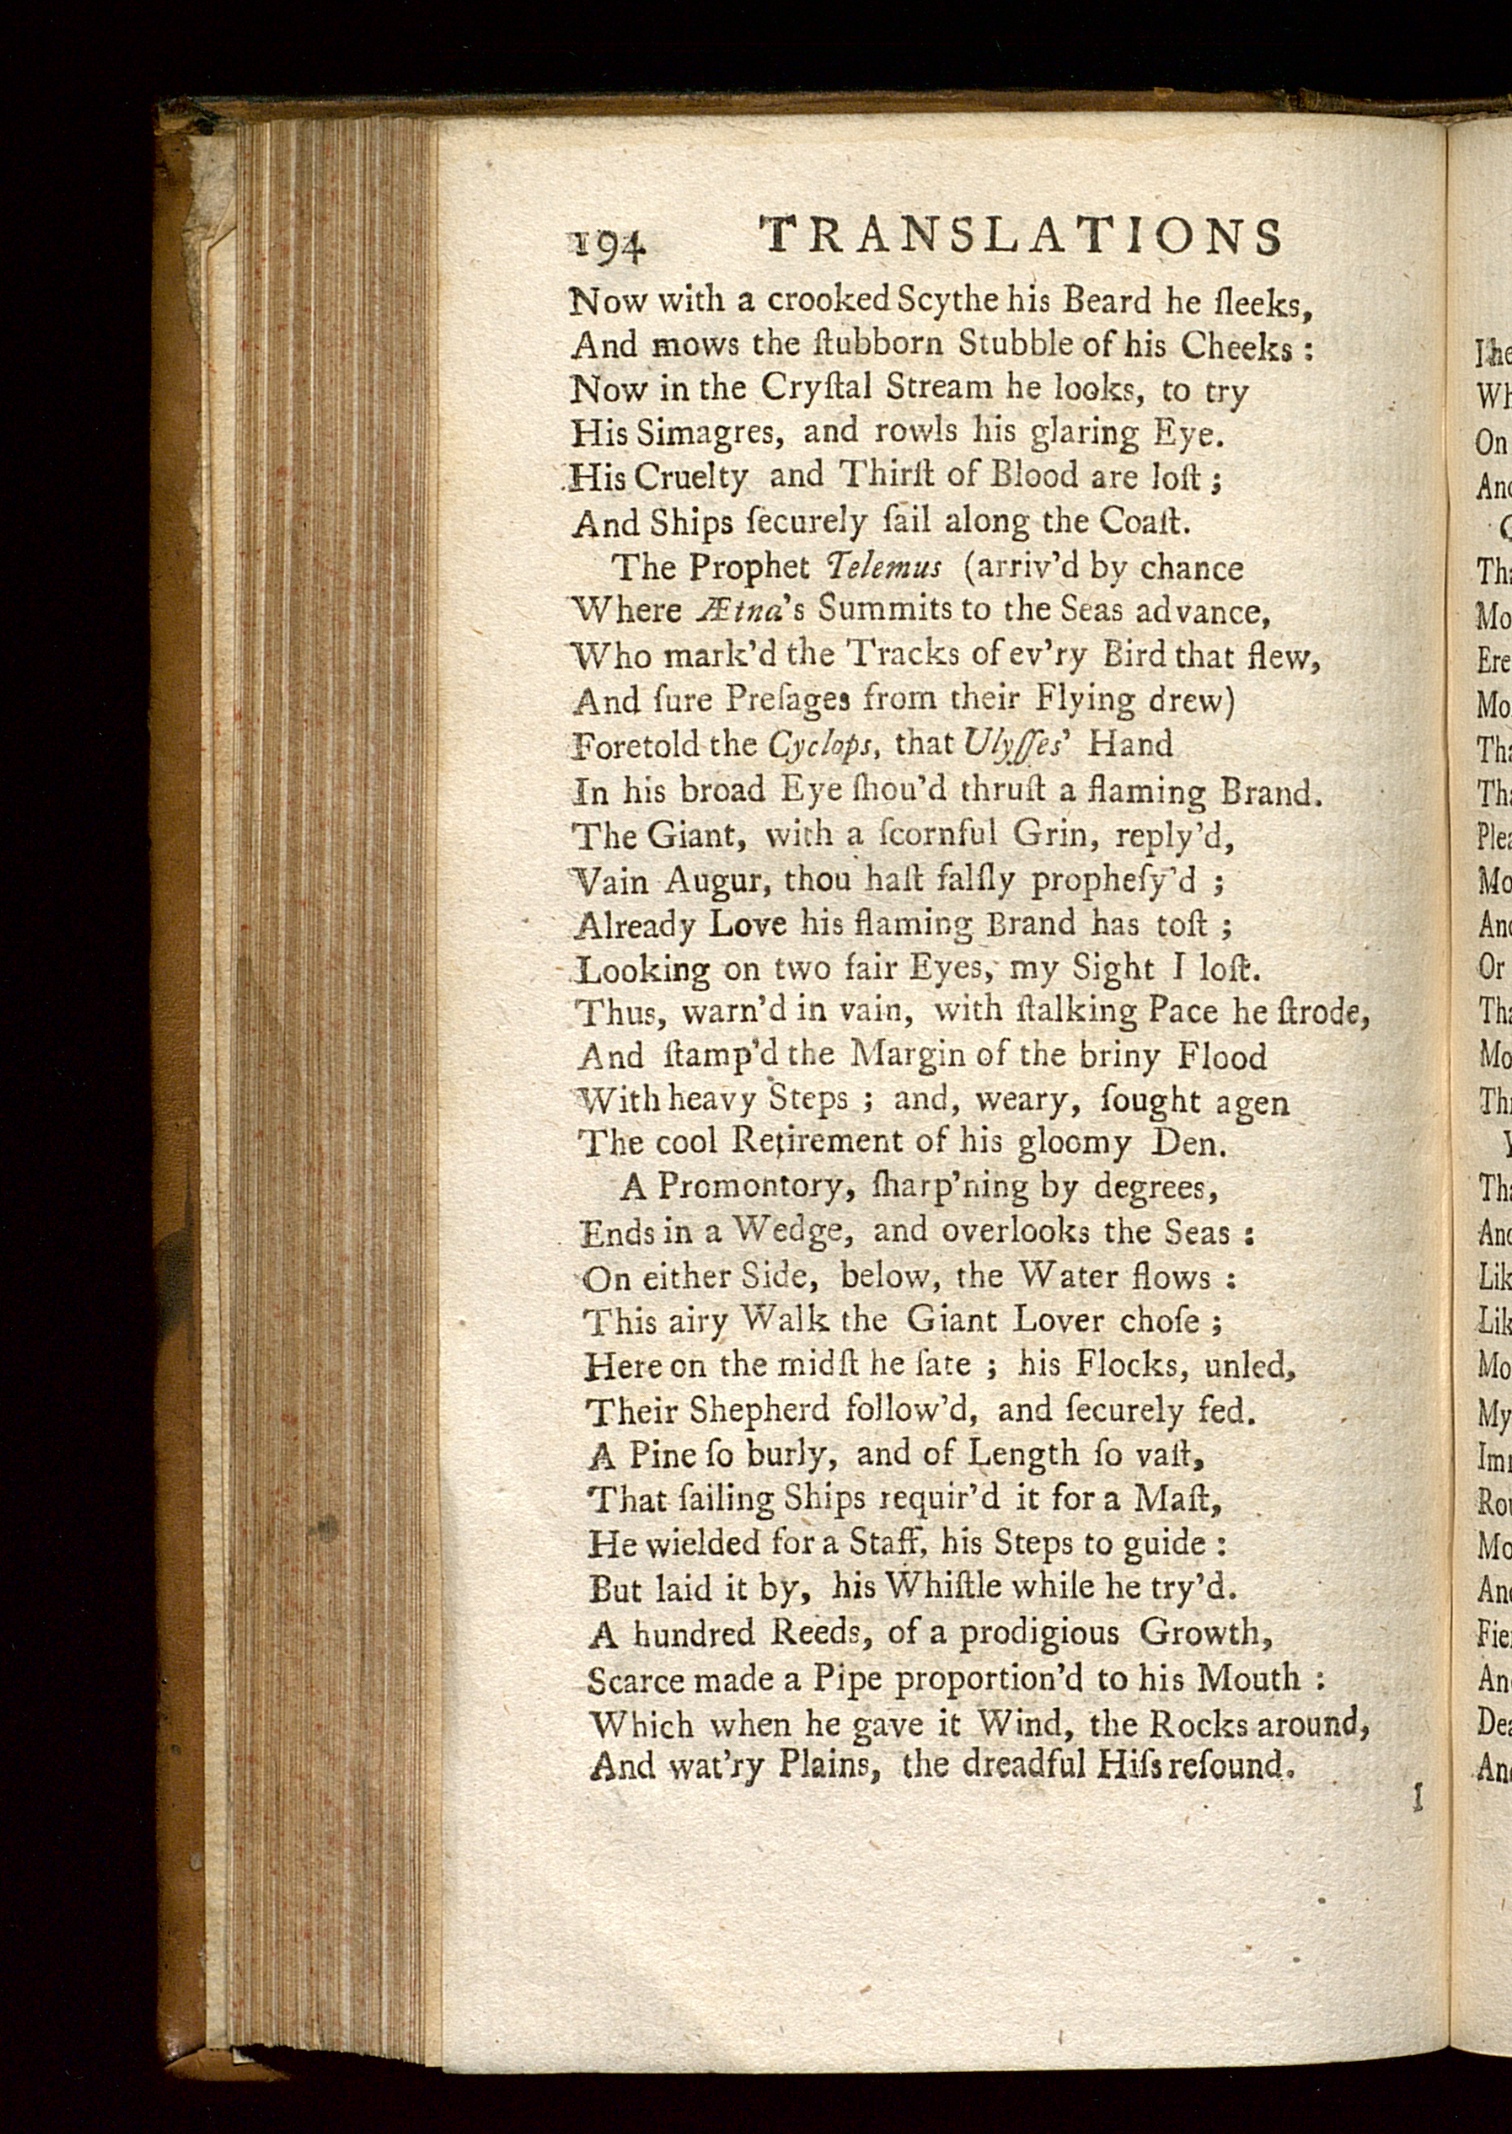 194 TRANSLATIONS
Now with a crooked Scythe his Beard he ſleeks,
And mows the ſtubborn Stubble of his Cheeks :
Now in the Cryſtal Stream he looks, to try
His Simagres, and rowls his glaring Eye.
His Cruelty and Thirſt of Blood are loſt ;
And Ships ſecurely ſail along the Coaſt.
The Prophet Telemus (arriv'd by chance
Where Ætna's Summits to the Seas advance,
Who mark'd the Tracks of ev'ry Bird that flew,
And ſure Preſages from their Flying drew)
Foretold the Cyclops, that Ulyſſes' Hand
In his broad Eye ſhou'd thruſt a flaming Brand.
The Giant, with a ſcornful Grin, reply'd,
Vain Augur, thou haſt falſly propheſy'd ;
Already Love his flaming Brand has toſt ;
Looking on two fair Eyes, my Sight I loſt.
Thus, warn'd in vain, with ſtalking Pace he ſtrode,
And ſtamp'd the Margin of the briny Flood
With heavy Steps ; and, weary, ſought agen
The cool Retirement of his gloomy Den.
A Promontory, ſharp'ning by degrees,
Ends in a Wedge, and overlooks the Seas :
On either Side, below, the Water flows :
This airy Walk the Giant Lover choſe ;
Here on the midſt he ſate ; his Flocks, unled,
Their Shepherd follow'd, and ſecurely fed.
A Pine ſo burly, and of Length ſo vaſt,
That ſailing Ships requir'd it for a Maſt,
He wielded for a Staff, his Steps to guide :
But laid it by, his Whiſtle while he try'd.
A hundred Reeds, of a prodigious Growth,
Scarce made a Pipe proportion'd to his Mouth :
Which when he gave it Wind, the Rocks around,
And wat'ry Plains, the dreadful Hiſs reſound.
I